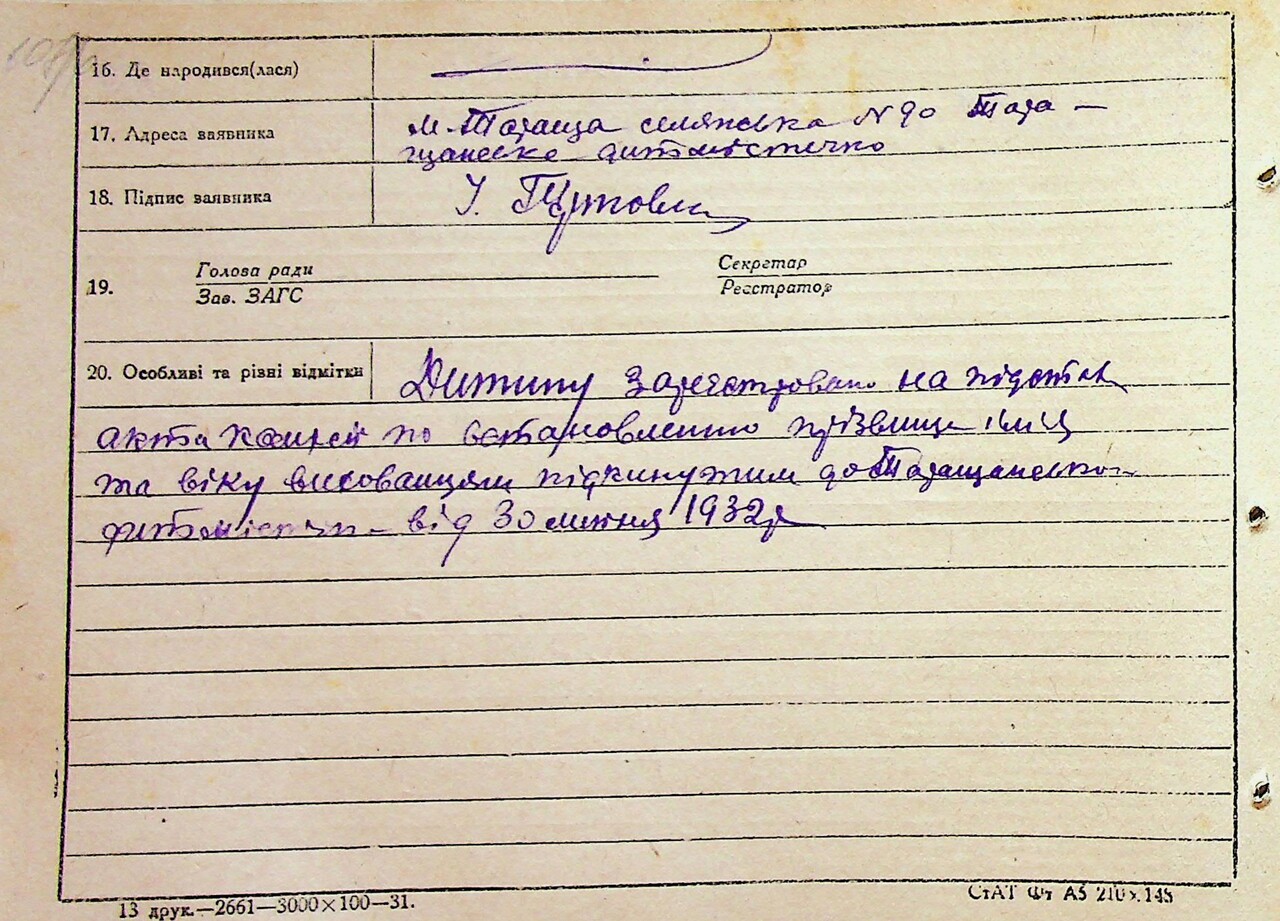 16. Де народився(лася)
17. Адреса заявника
м. Тараща селянська N 90 Тара-
щанське дитмістечко
18. Підпис заявника
І. Гуртовий
19.
Голова ради
Зав. ЗАГС
Секретар
Реєстратор
20. Особливі та різні відмітки
Дитину зареєстровано на підстав
акта комісії по встановленню прізвища імя
та віку вихованцям підкинутим до Таращанського
дитмістечк від 30 липня 1932р
13 друк.—2661—3000×100—31.
СтАТ Фт А5 210×148